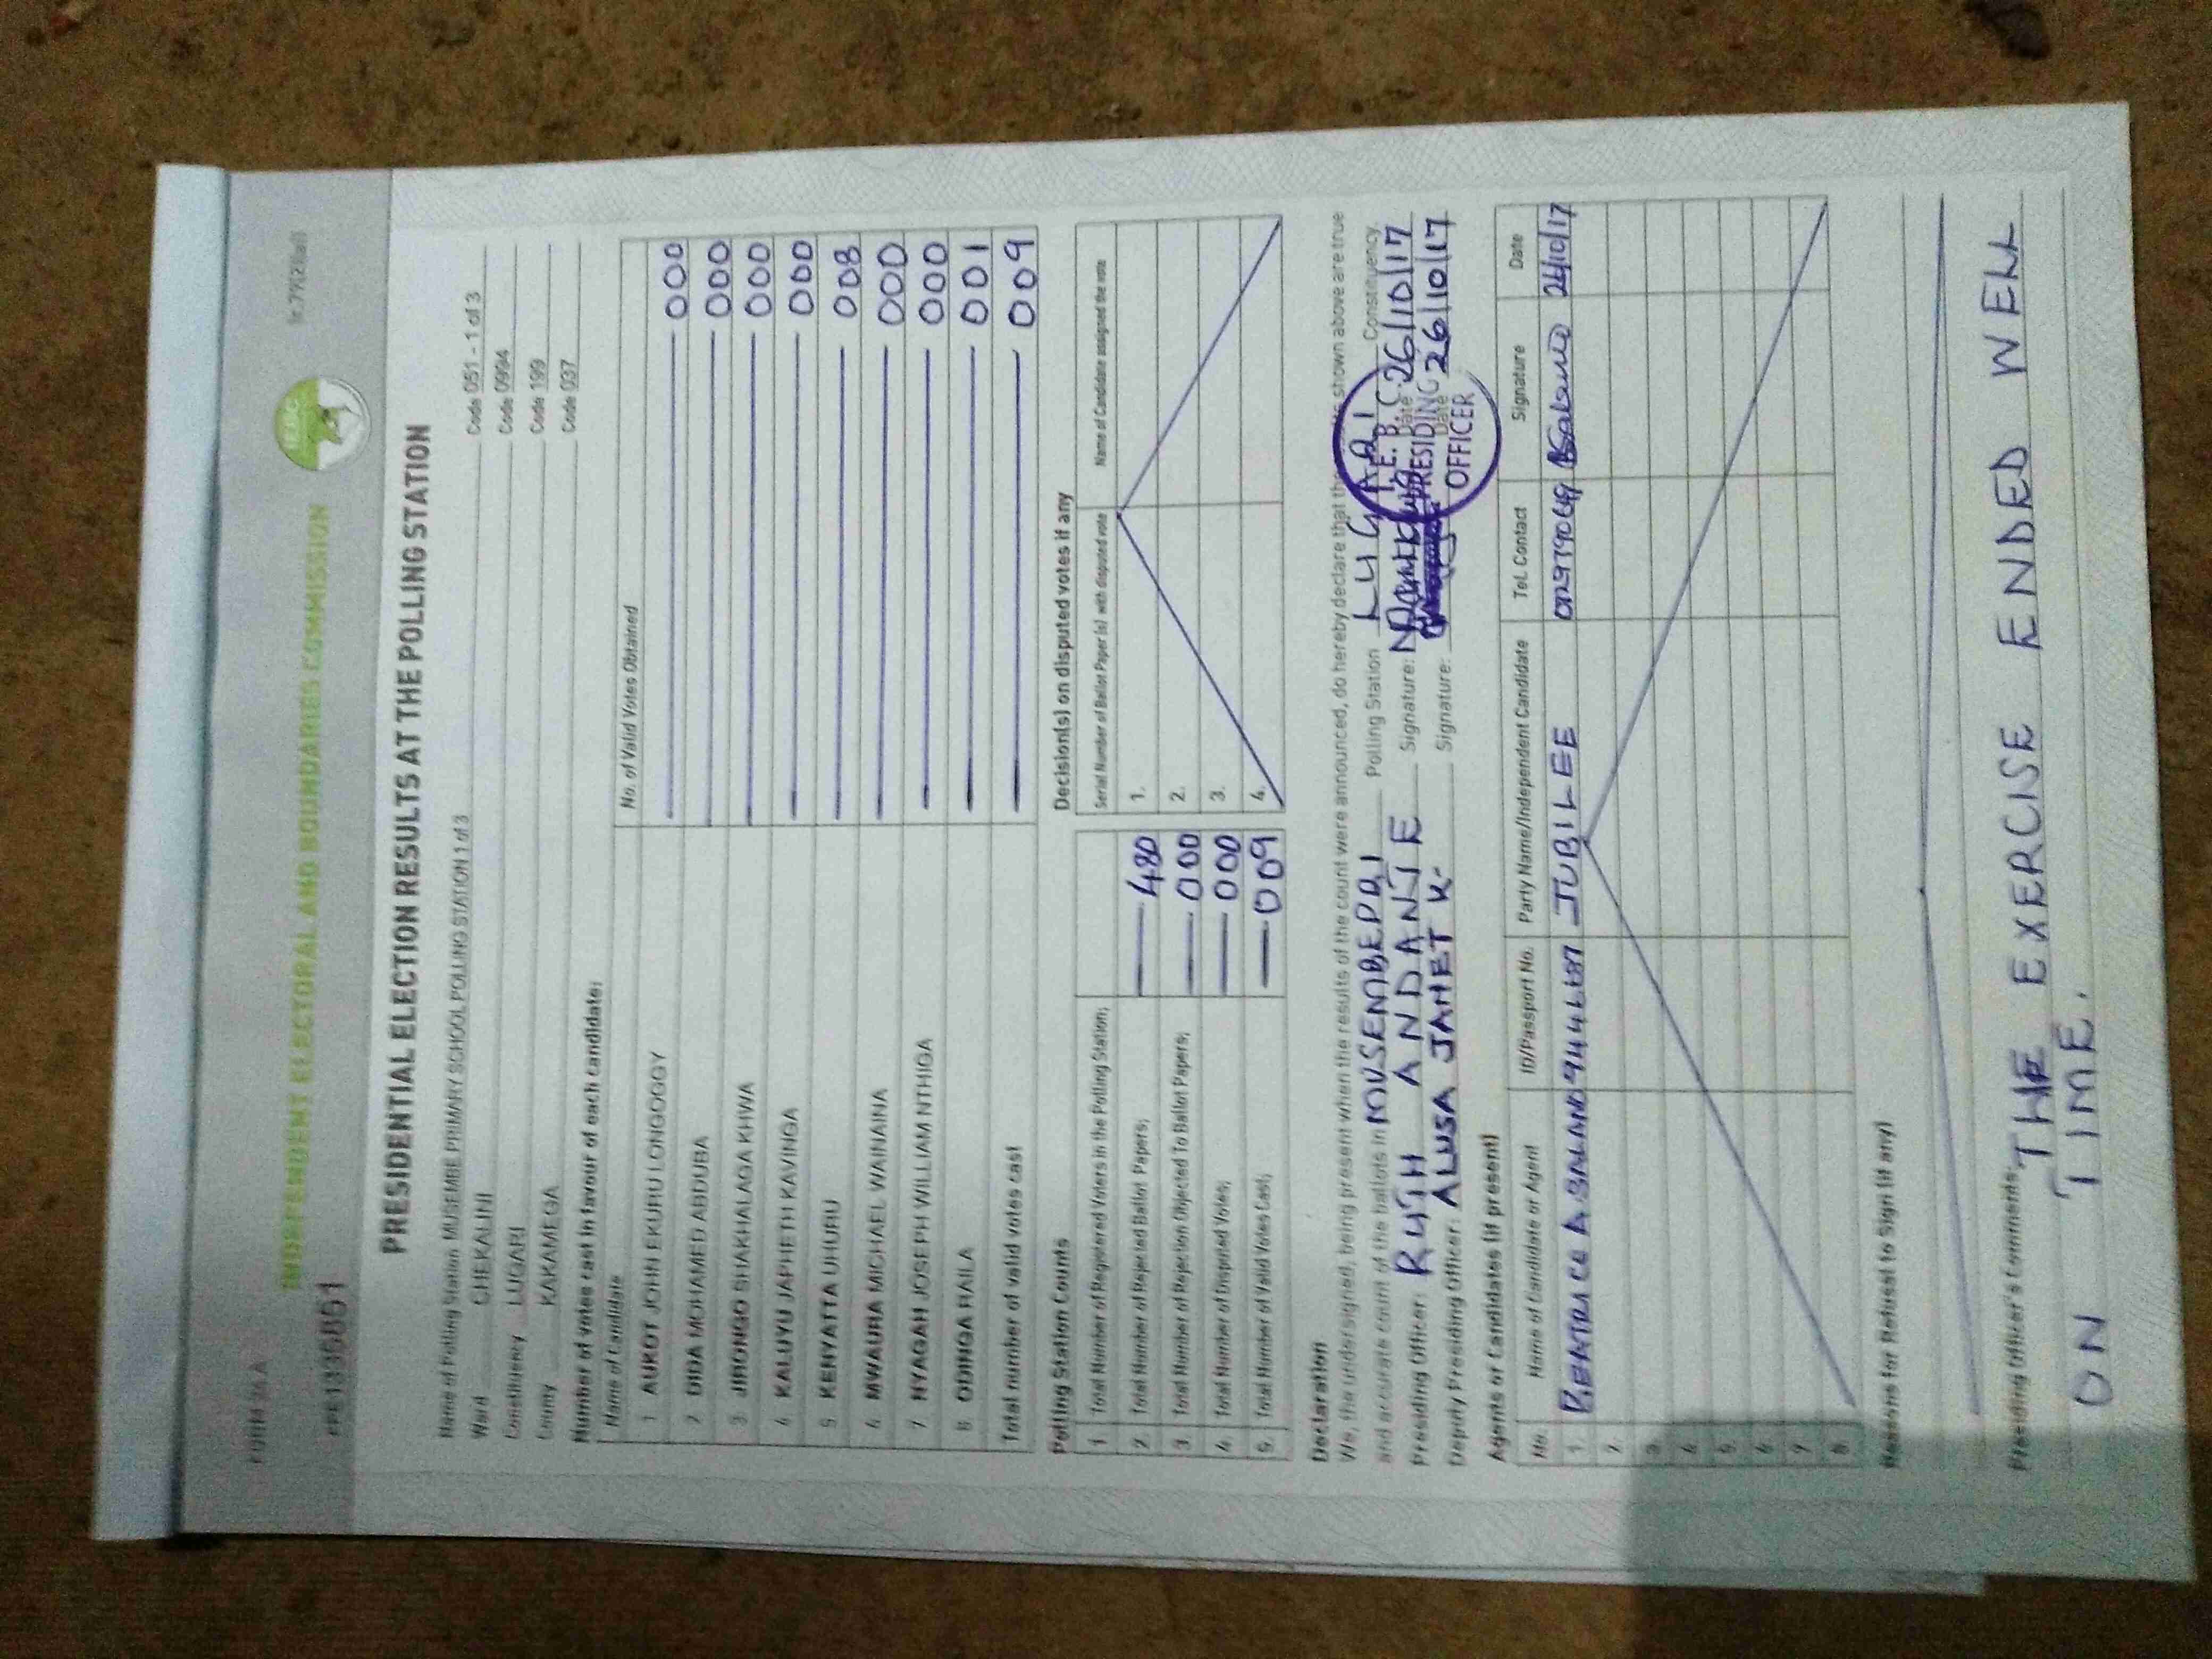 FORM 34A
INDEPENDENT ELECTORAL AND BOUNDARIES COMMISSION
PRESIDENTIAL ELECTION RESULTS AT THE POLLING STATION
Name of Polling Station MUSEMBE PRIMARY SCHOOL POLLING STATION 1 of 3 Code 051 - 1 of 3
Ward CHEKALINI Code 0994
Constituency LUGARI Code 199
County KAKAMEGA Code 037
Number of votes cast in favour of each candidate:
Name of Candidate No. of Valid Votes Obtained
1 AUKOT JOHN EKURU LONGOGGY 000
2 DIDA MOHAMED ABDUBA 000
3 JIRONGO SHAKHALAGA KHWA 000
4 KALUYU JAPHETH KAVINGA 000
5 KENYATTA UHURU 008
6 MWAURA MICHAEL WAINAINA 000
7 NYAGAH JOSEPH WILLIAM NTHIGA 000
8 ODINGA RAILA 001
Total number of valid votes cast 009
Polling Station Counts
1 Total Number of Registered Voters in the Polling Station; 480
2. Total Number of Rejected Ballot Papers; 000
3. Total Number of Rejection Objected To Ballot Papers; 000
4. Total Number of Disputed Votes; 000
5. Total Number of Valid Votes Cast; 009
Decision(s) on disputed votes if any
Serial Number of Ballot Paper (s) with disputed vote Name of Candidate assigned the vote
1.
2.
3.
4.
Declaration
We, the undersigned, being present when the results of the count were announced, do hereby declare that the shown above are true
and accurate count of the ballots in MUSEMBE PRI Polling Station LUGARI Constituency.
Presiding Officer: RUTH ANDANJE Signature: Date 26/10/17
Deputy Presiding Officer: ALUSA JANET K. Signature: Date 26/10/17
I.E.B.C.
PRESIDING
OFFICER
Agents or Candidates (if present)
No. Name of Candidate or Agent ID/Passport No. Party Name/Independent Candidate Tel. Contact Signature Date
1. JUBILEE
2.
3.
4.
5.
6.
7.
8.
Reasons for Refusal to Sign (if any)
Presiding Officer's Comments: THE EXERCISE ENDED WELL
ON TIME.